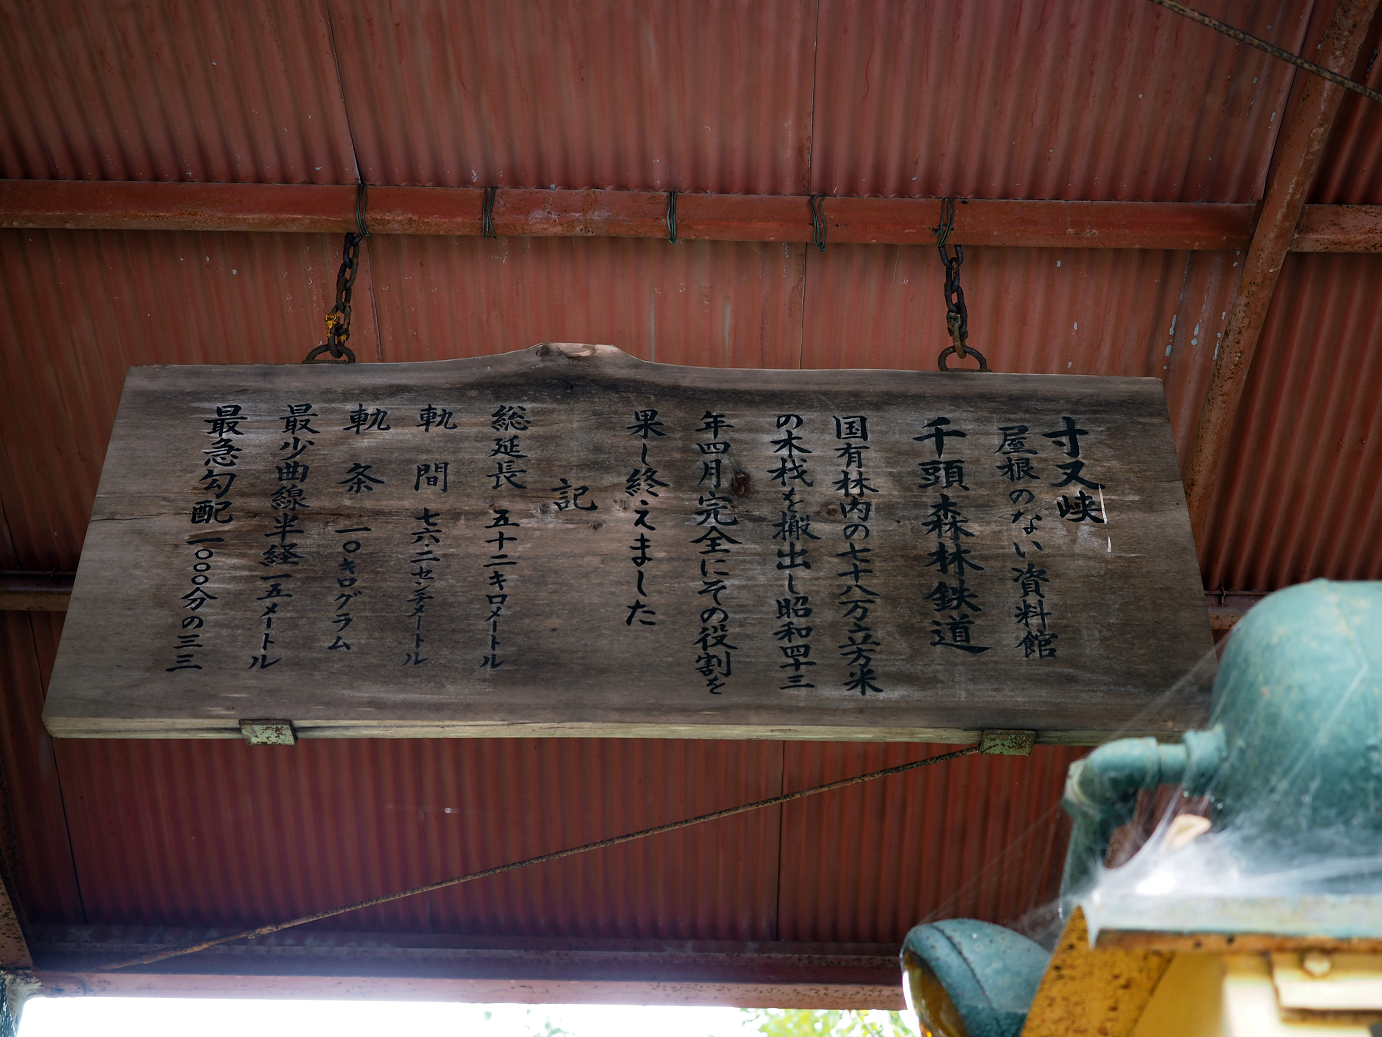 寸又峡
屋根のない資料館
千頭森林鉄道
国有林内の七十八万立方米
の木材を搬出し昭和四十三
年四月完全にその役割を
果し終えました
記
総延長 五十二キロメートル
軌間 七六・二センチメートル
軌条 一〇キログラム
最少曲線半経 一五メートル
最急勾配 一〇〇〇分の三三